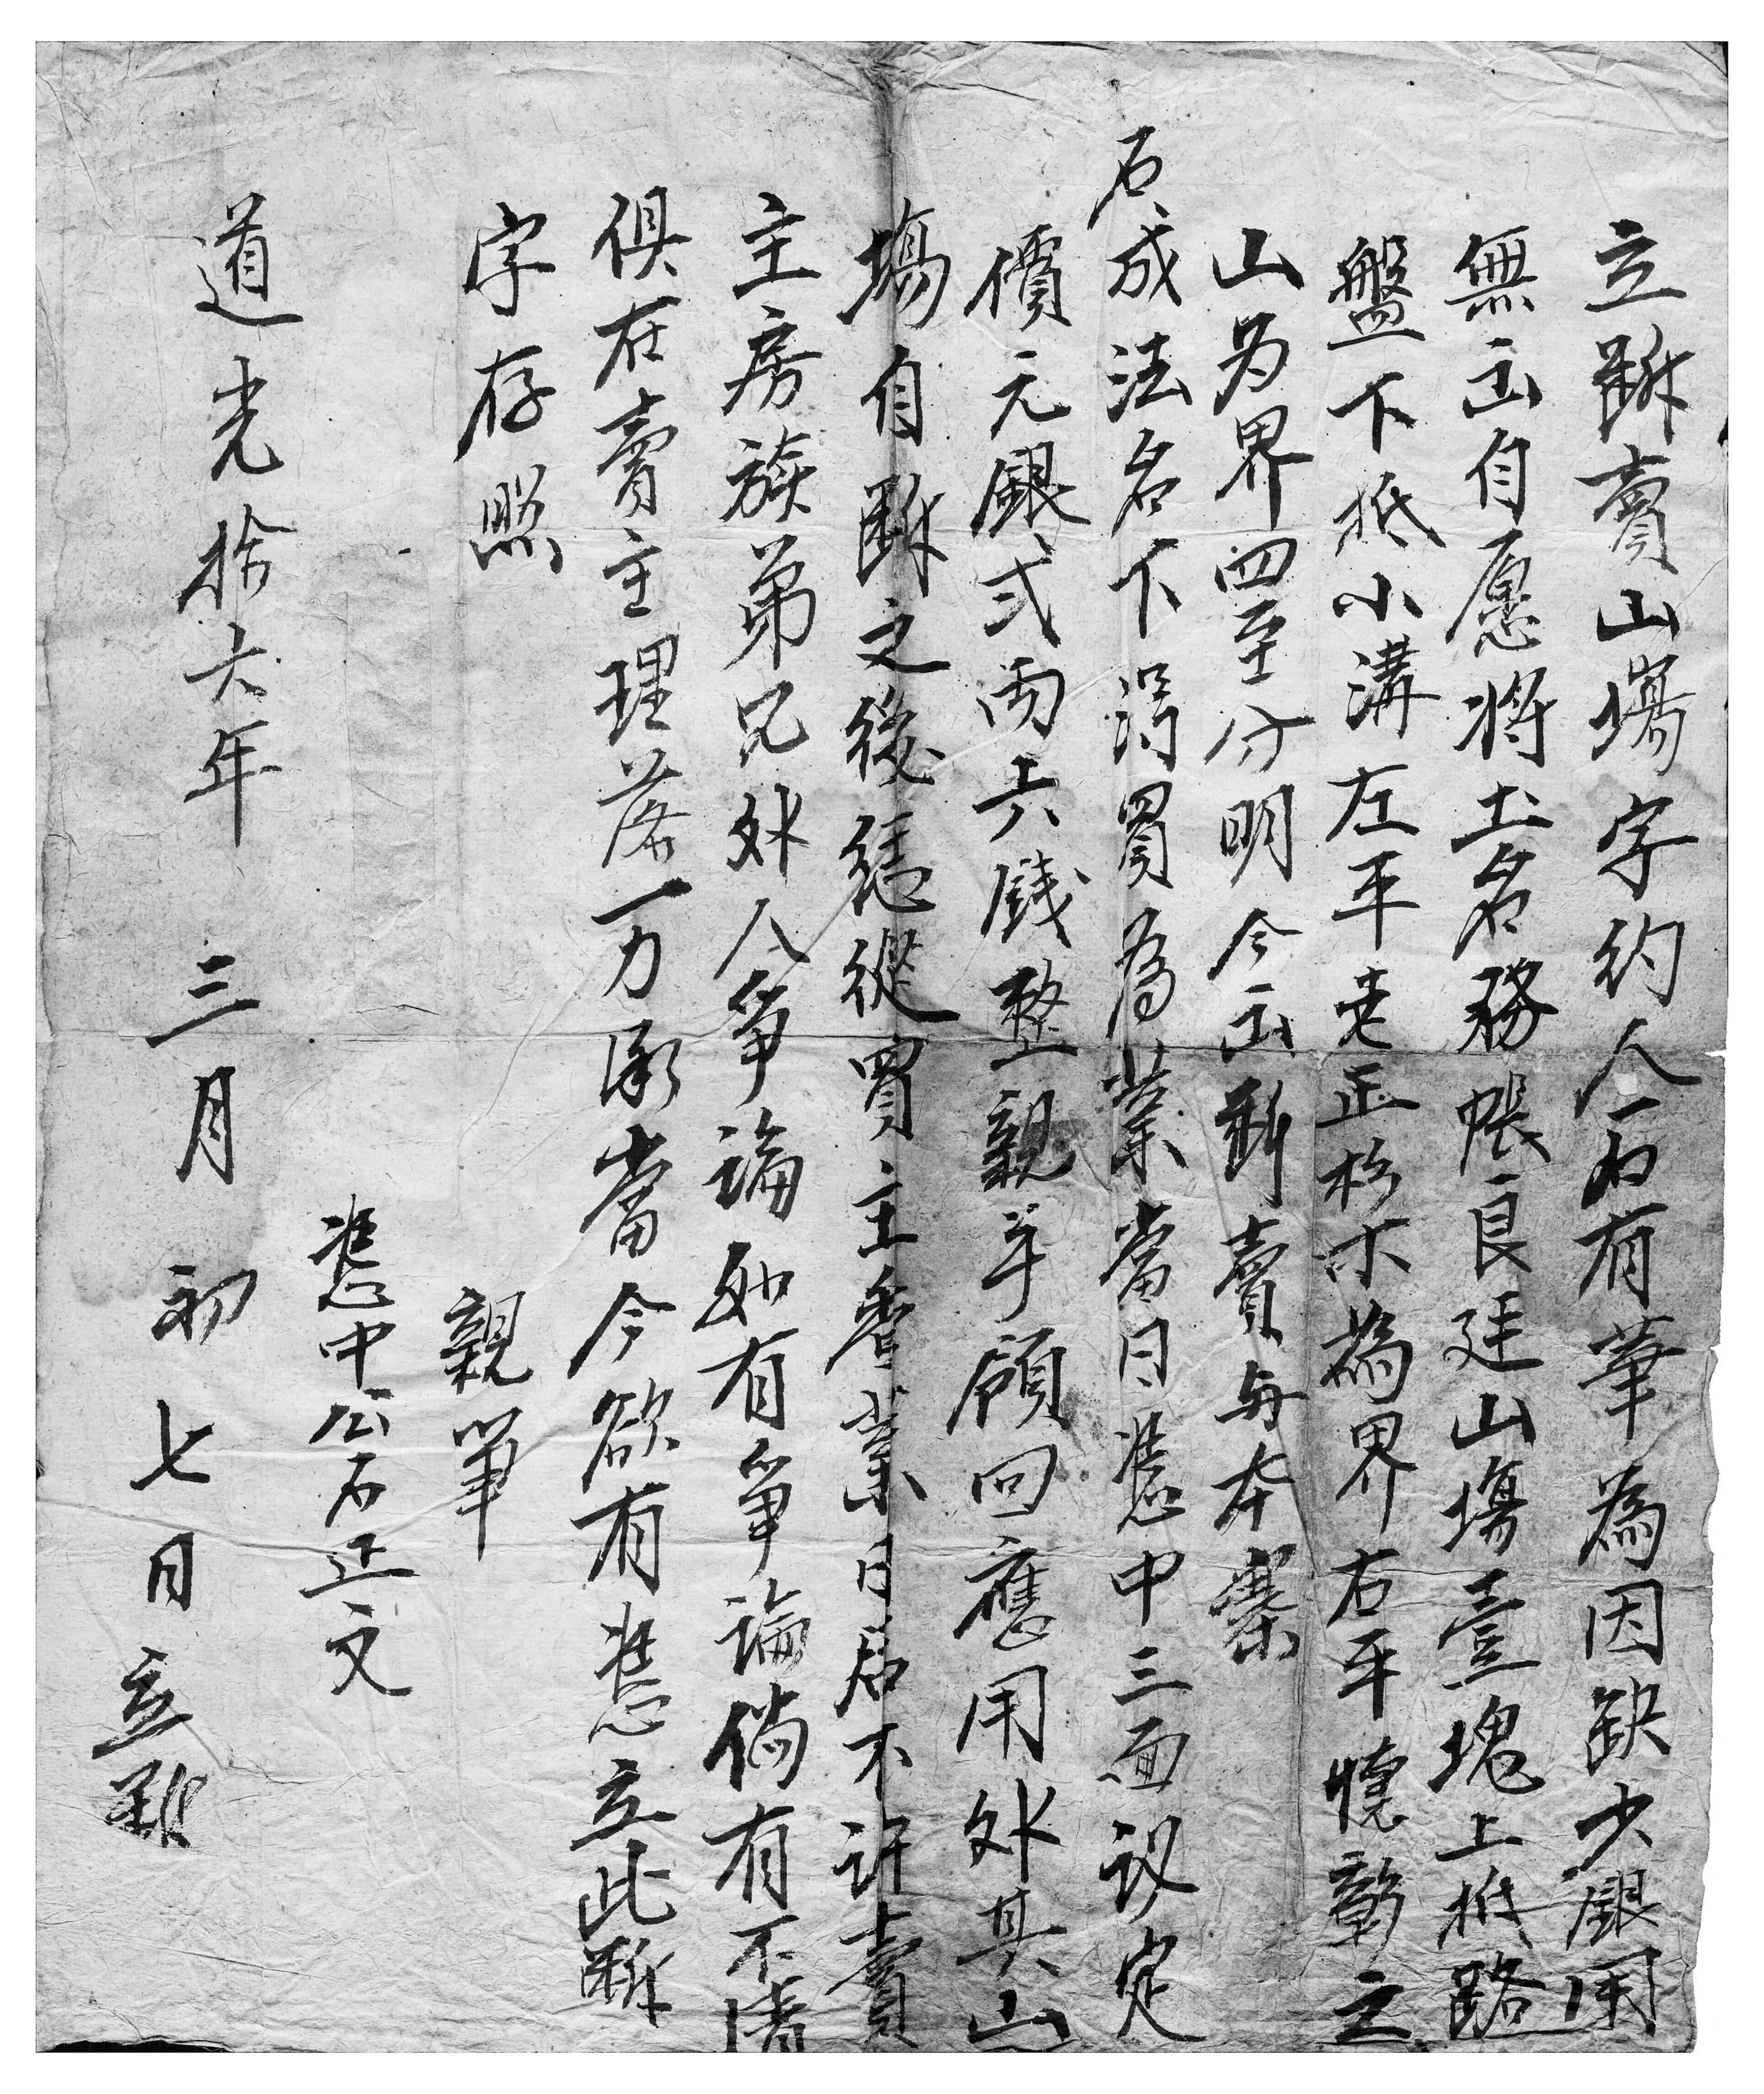 立斷賣山塲字約人石有華為因缺少銀用
無出自愿将土名務帳良廷山塲壹塊上抵路
盤下抵小溝左平老正杉木為界右平 彰之
山为界四至分明今出斷賣与本寨
石成法名下得買為業當日憑中三面议定
價元銀弍両六錢整親手領回應用外其山
塲自斷之後凴從買主管業日后不許賣
主房族弟兄外人爭論如有爭論倘有不清
俱在賣主理落一力承當今欲有憑立此斷
字存照
親筆
憑中公石正文
道光拾六年三月初七日立斷